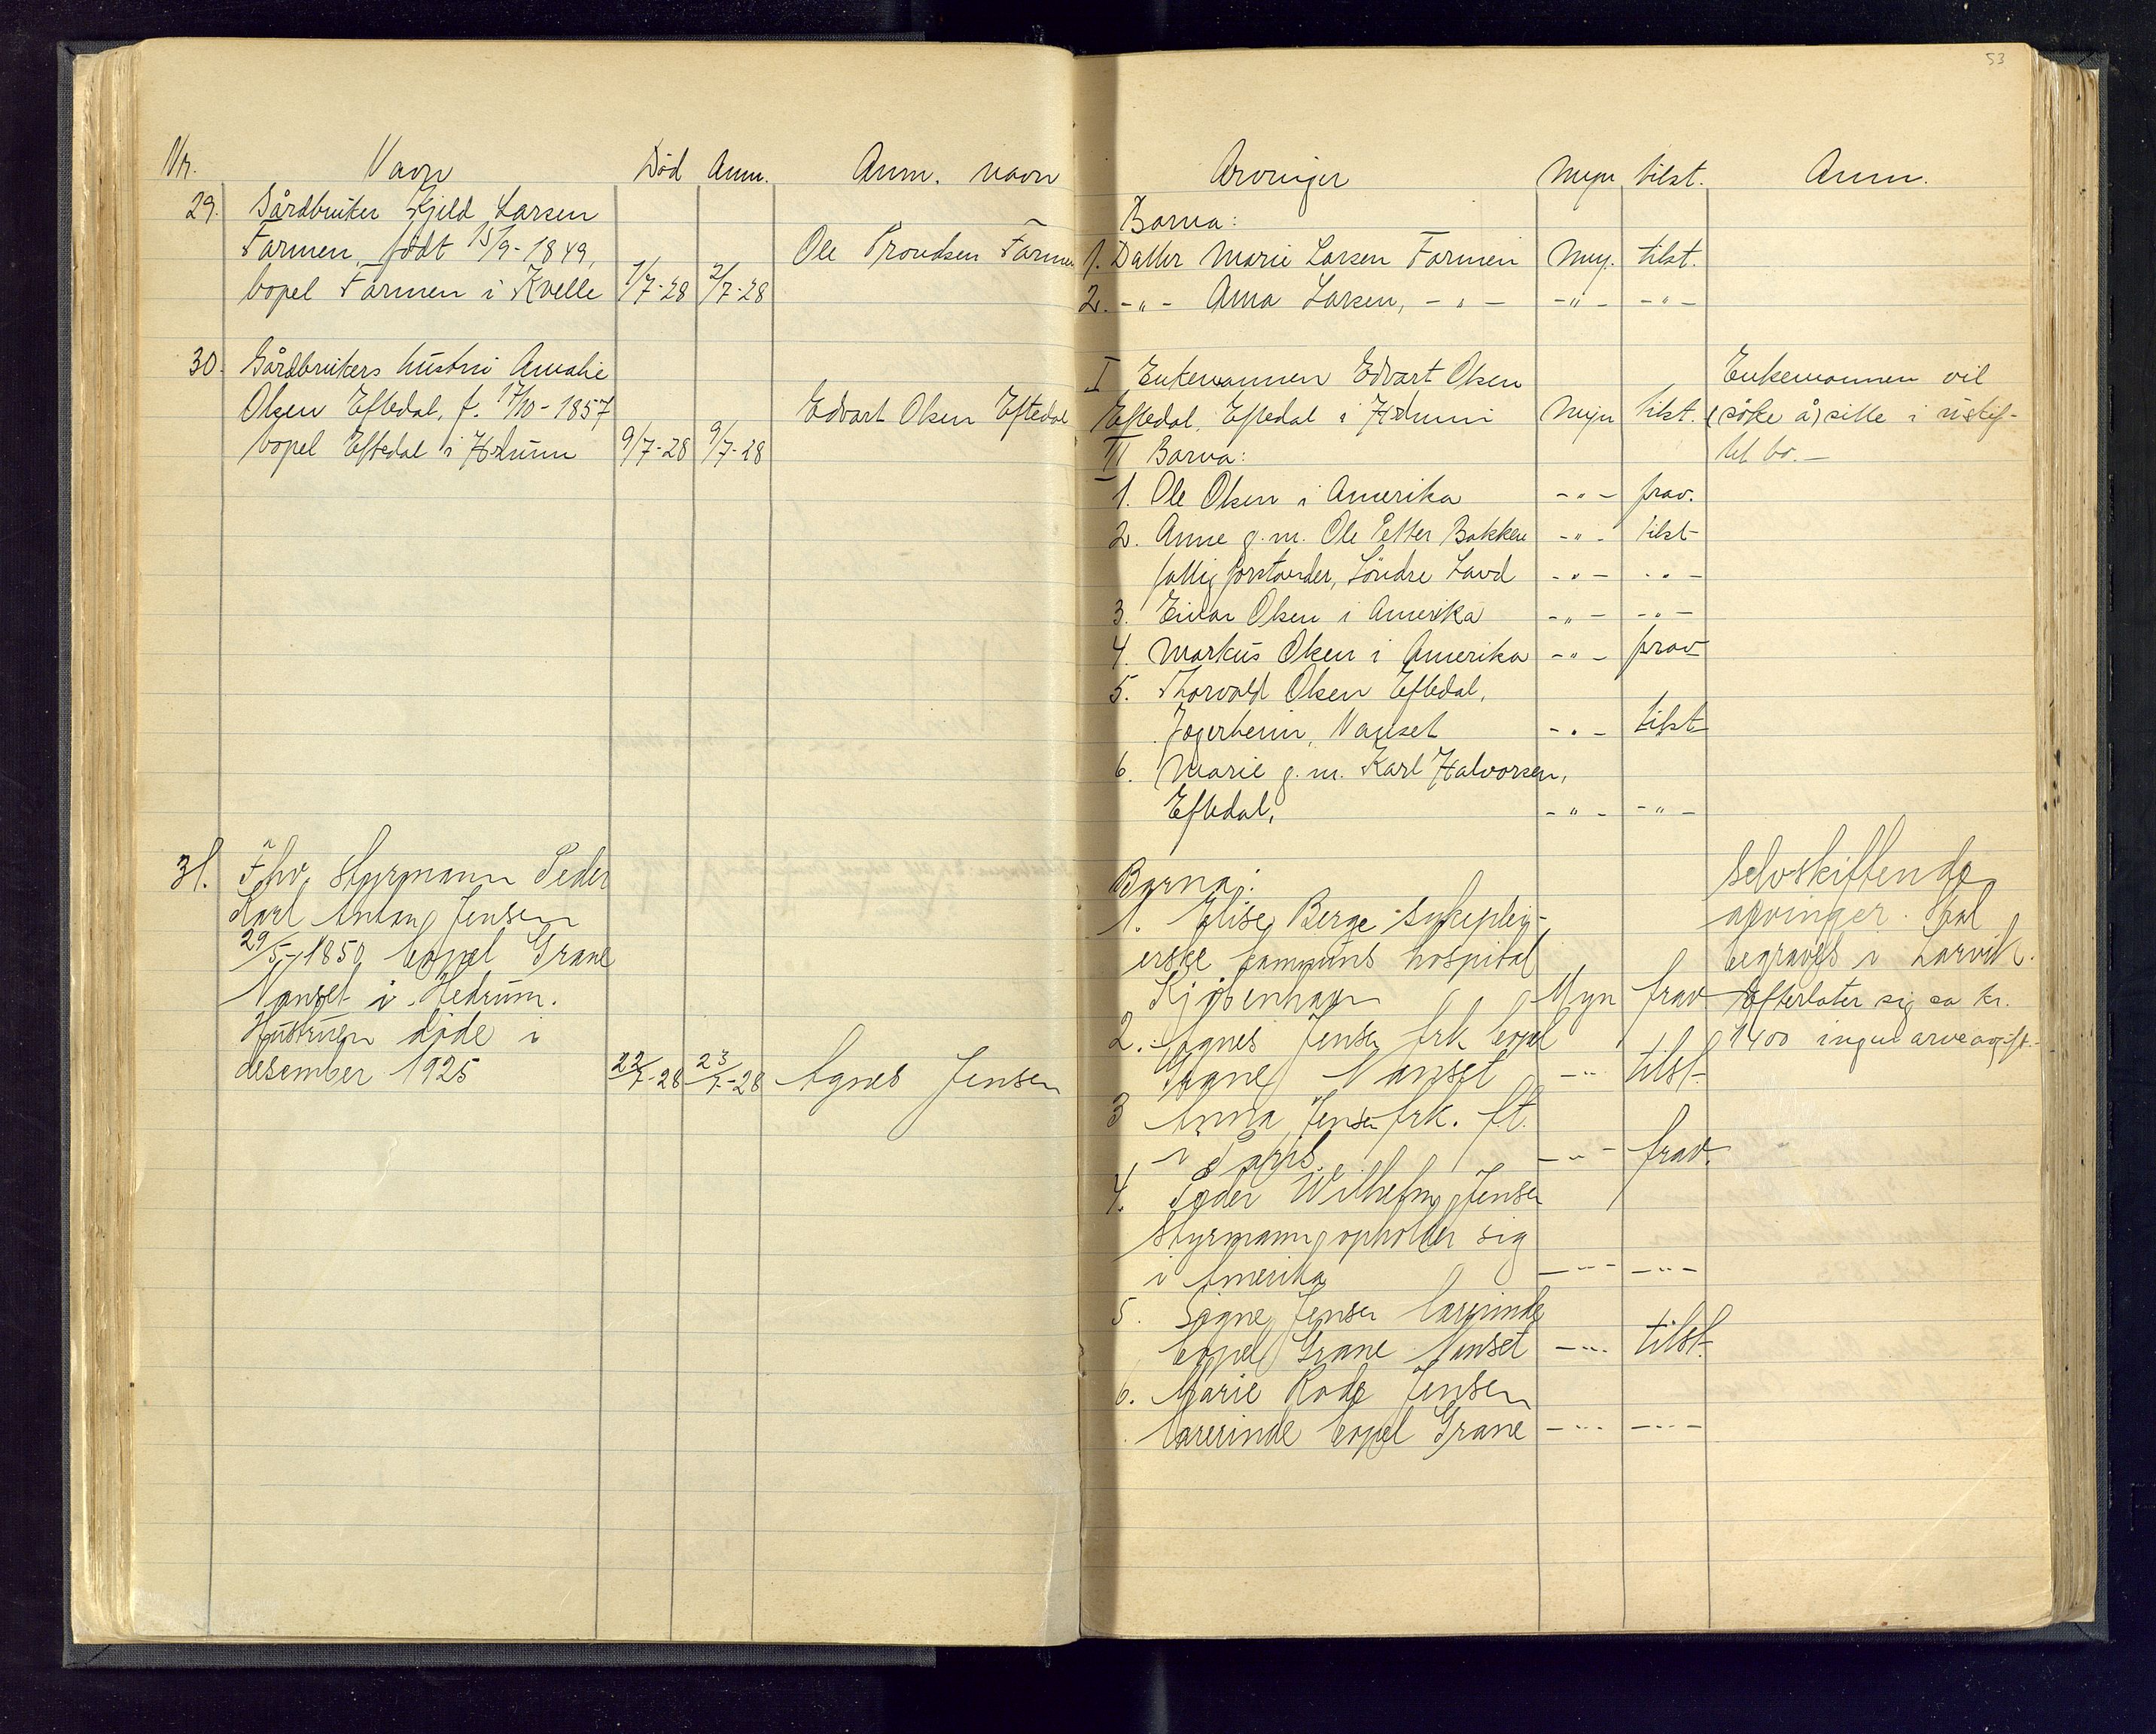 53
Nr. Navn Död Anm. Anm. navn
29. Gårdbruker Kjeld Larsen
Farmen, födt 15/9-1849, Ole Trondsen Farmen
bopel Farmen i Kvelle 1/7-28 2/7-28
30. Gårdbrukers hustru Amalie
Olsen Eftedal, f. 17/10-1857 Edvart Olsen Eftedal
bopel Eftedal i Hedrum 9/7-28 9/7-28
31. Fhv. Styrmann Peder
Karl Anton Jensen
29/5-1850 bopel Grane
Nanset i Hedrum.
Hustruen döde i
desember 1925 22/7-28 23/7-28 Agnes Jensen
Arvinger Myn tilst. Anm.
Barna:
1. Datter Marie Larsen Farmen Myn. tilst.
2. -"- Anna Larsen, -"- -"- -"-
I Enkemannen Edvart Olsen Enkemannen vil
Eftedal, Eftedal i Hedrum Myn tilst. (söke å) sitte i uskif-
II Barna: tet bo.-
1. Ole Olsen i Amerika -"- frav.
2. Anne g.m. Ole Petter Bakken -"- tilst
fattigforstander, Söndre Land -"- -"-
3. Einar Olsen i Amerika -"- -"-
4. Markus Olsen i Amerika -"- frav
5. Thorvald Olsen Eftedal,
Fagerheim, Nanset -"- tilst
6. Marie g.m. Karl Halvorsen,
Eftedal, -"- -"-
Barna: Selvskiftende
1. Elise Berge sykeplei- arvinger. Skal
erske kommuns hospital begraves i Larvik.
Kjøbenhavn Myn frav Efterlater sig ca kr.
2. Agnes Jensen frk bopel 1400 ingen arveavgift.-
Grane Nanset -"- tilst.
3 Anna Jensen frk. ft.
i Paris -"- frav.
4. Peder Wilhelm Jensen
Styrmann opholder sig
i Amerika -"- -"-
5. Signe Jensen lærerinde
bopel Grane Nanset -"- tilst.
6. Marie Rode Jensen
lærerinde bopel Grane -"- -"-